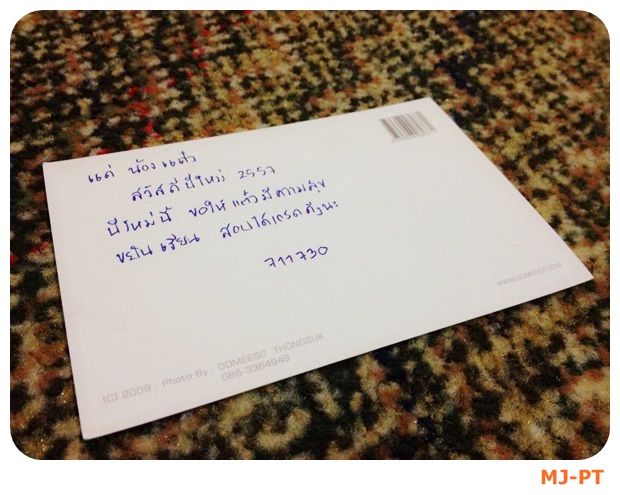 แด่ น้องแต๋ว
สวัสดีปีใหม่ 2557
ปีใหม่นี้ ขอให้แต๋วมีความสุข
ขยันเรียน สอบได้เกรดดีๆนะ
711730
WWW.DOMEESIT.COM
(C) 2009 : Photo By : DOMEESIT THONGSUK
086-3364949
MJ-PT